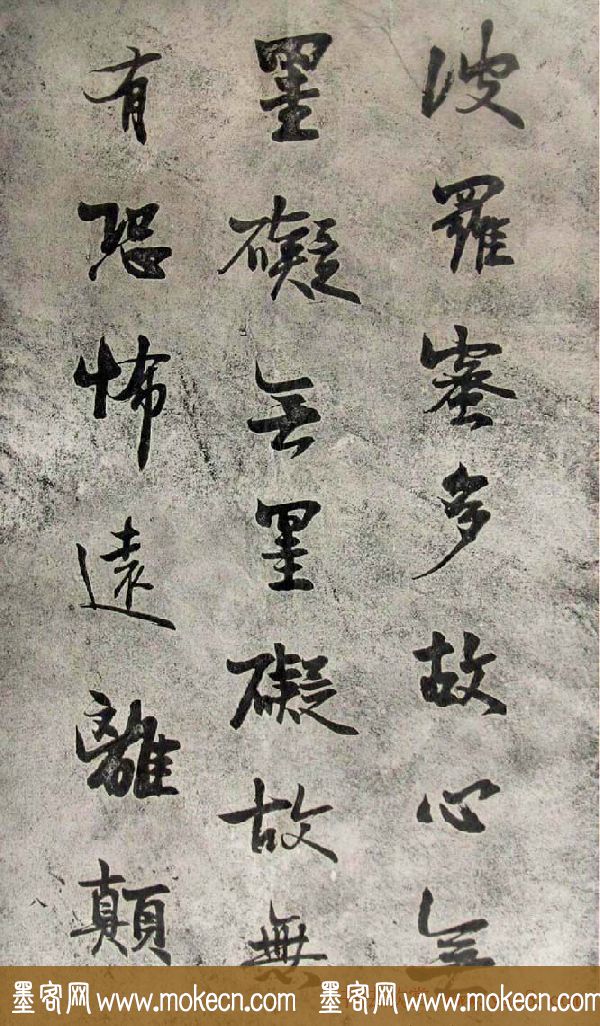 波羅蜜多故心无
罣礙无罣礙故無
有恐怖遠離顛
墨客网 www.mokecn.com 墨客网 www.mokecn.com